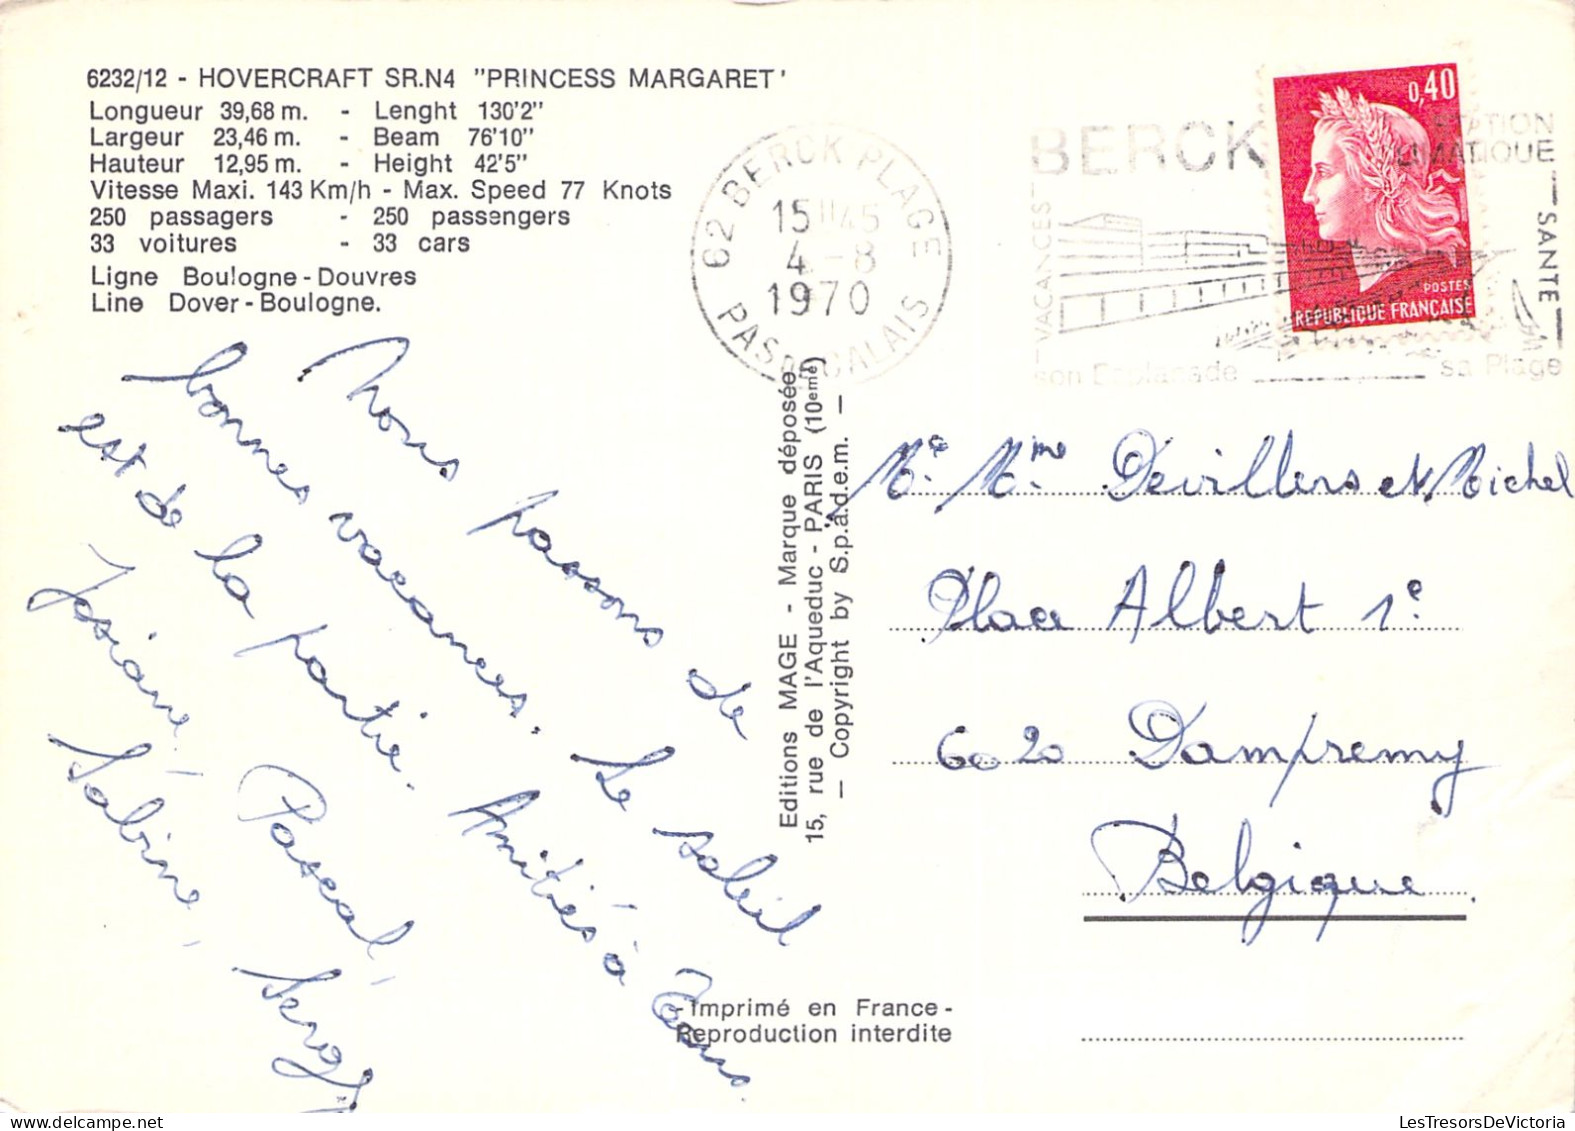 6232/12 - HOVERCRAFT SR.N4 "PRINCESS MARGARET'
Longueur 39,68 m. - Lenght 130'2"
Largeur 23,46 m. - Beam 76'10"
Hauteur 12,95 m. - Height 42'5"
Vitesse Maxi. 143 Km/h - Max. Speed 77 Knots
250 passagers - 250 passengers
33 voitures - 33 cars
Ligne Boulogne - Douvres
Line Dover - Boulogne.
Nous passons de
bonnes vacances. Le soleil
est de la partie. Amitiés à Tous.
Josiane, Pascal,
Sabine, Serge
Editions MAGE - Marque déposée
15, rue de l'Aqueduc - PARIS (10eme)
— Copyright by S.p.a.d.e.m. —
- Imprimé en France -
Reproduction interdite
62 BERCK PLAGE
15H45
4 - 8
1970
PAS DE CALAIS
BERCK
STATION
CLIMATIQUE
VACANCES
SANTE
son Esplanade
sa Plage
0,40
POSTES
REPUBLIQUE FRANÇAISE
Mr Mme Devillers et Michel
Place Albert 1e
6020 Dampremy
Belgique
LesTresorsDeVictoria.com